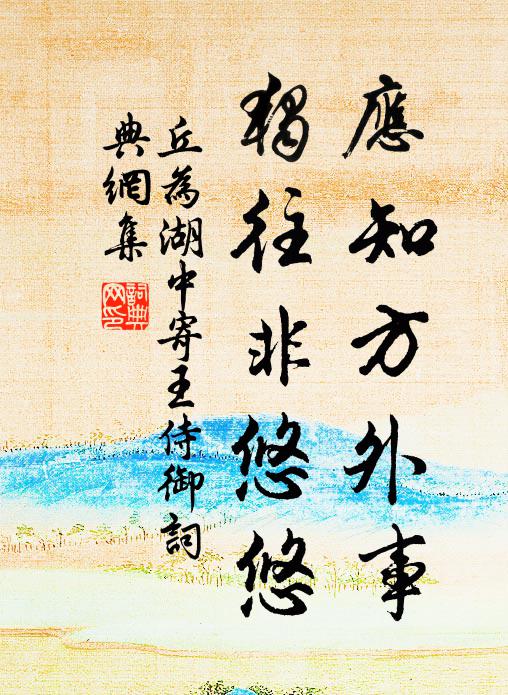 應知方外事
獨往非悠悠
丘為湖中寄王侍御詞
典網集
詞典網印